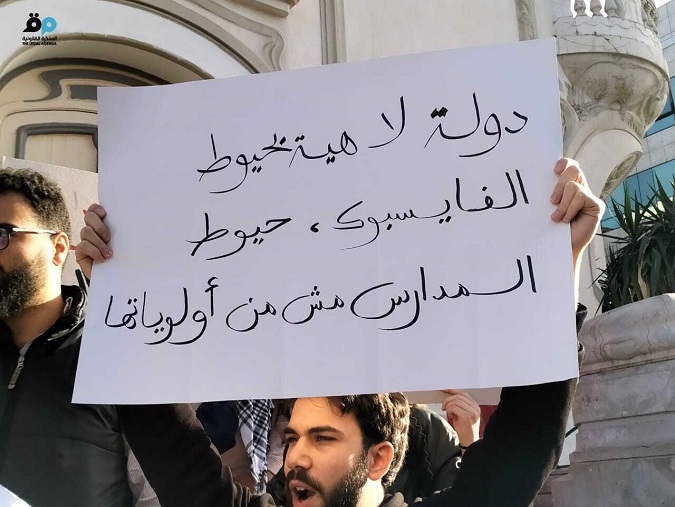 المفكرة القانونية
THE LEGAL AGENDA
دولة لاهية بحيوط
الفايسبوك، حيوط
المدارس مش من أولوياتها